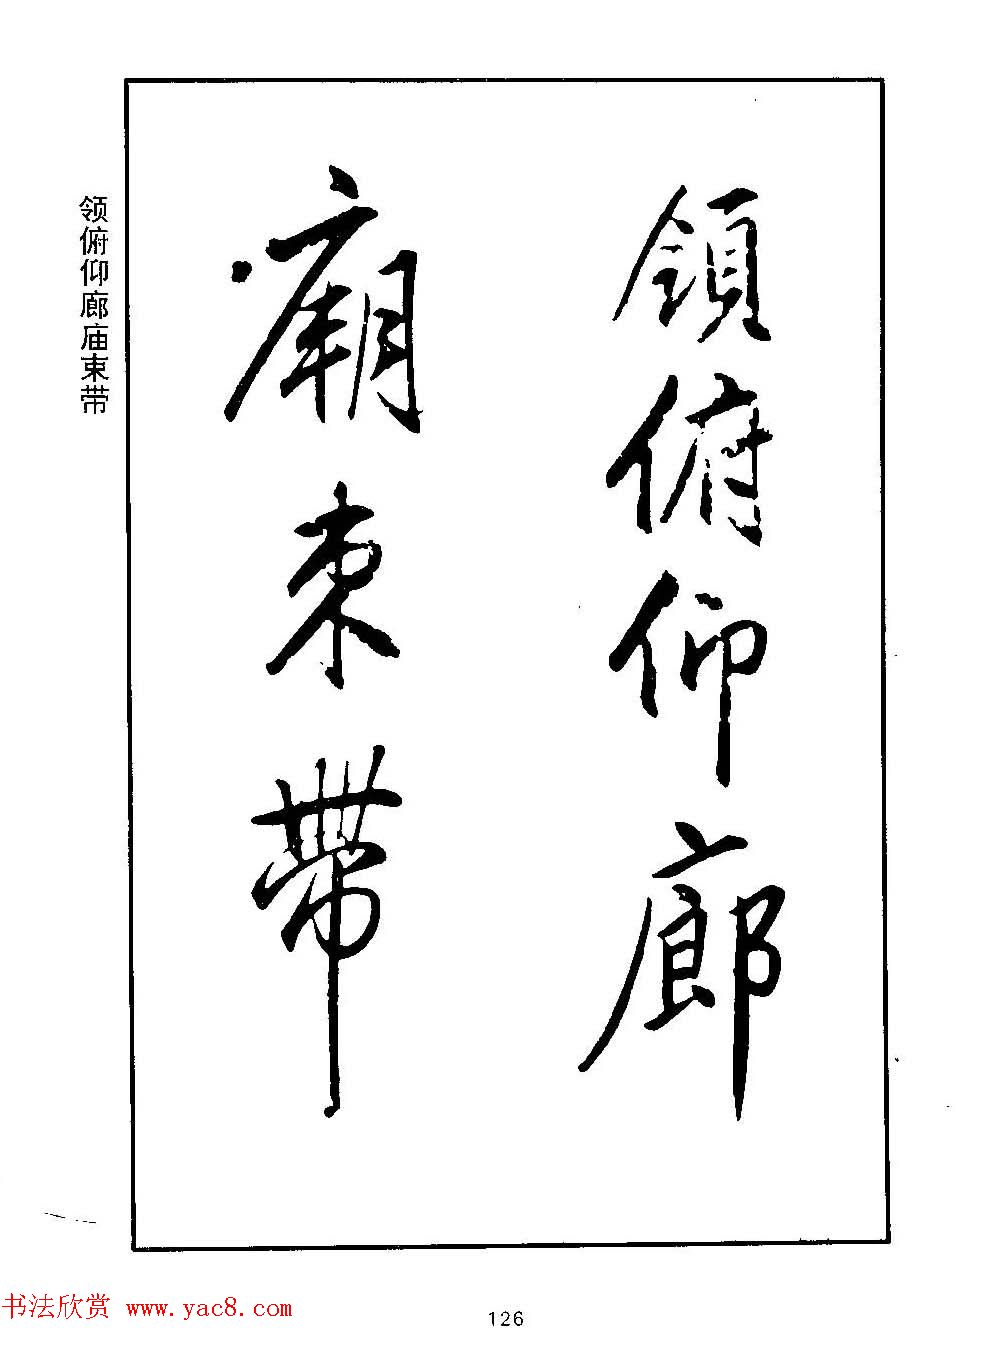 領俯仰廊
廟束帶
领俯仰廊庙束带
书法欣赏 www.yac8.com
126